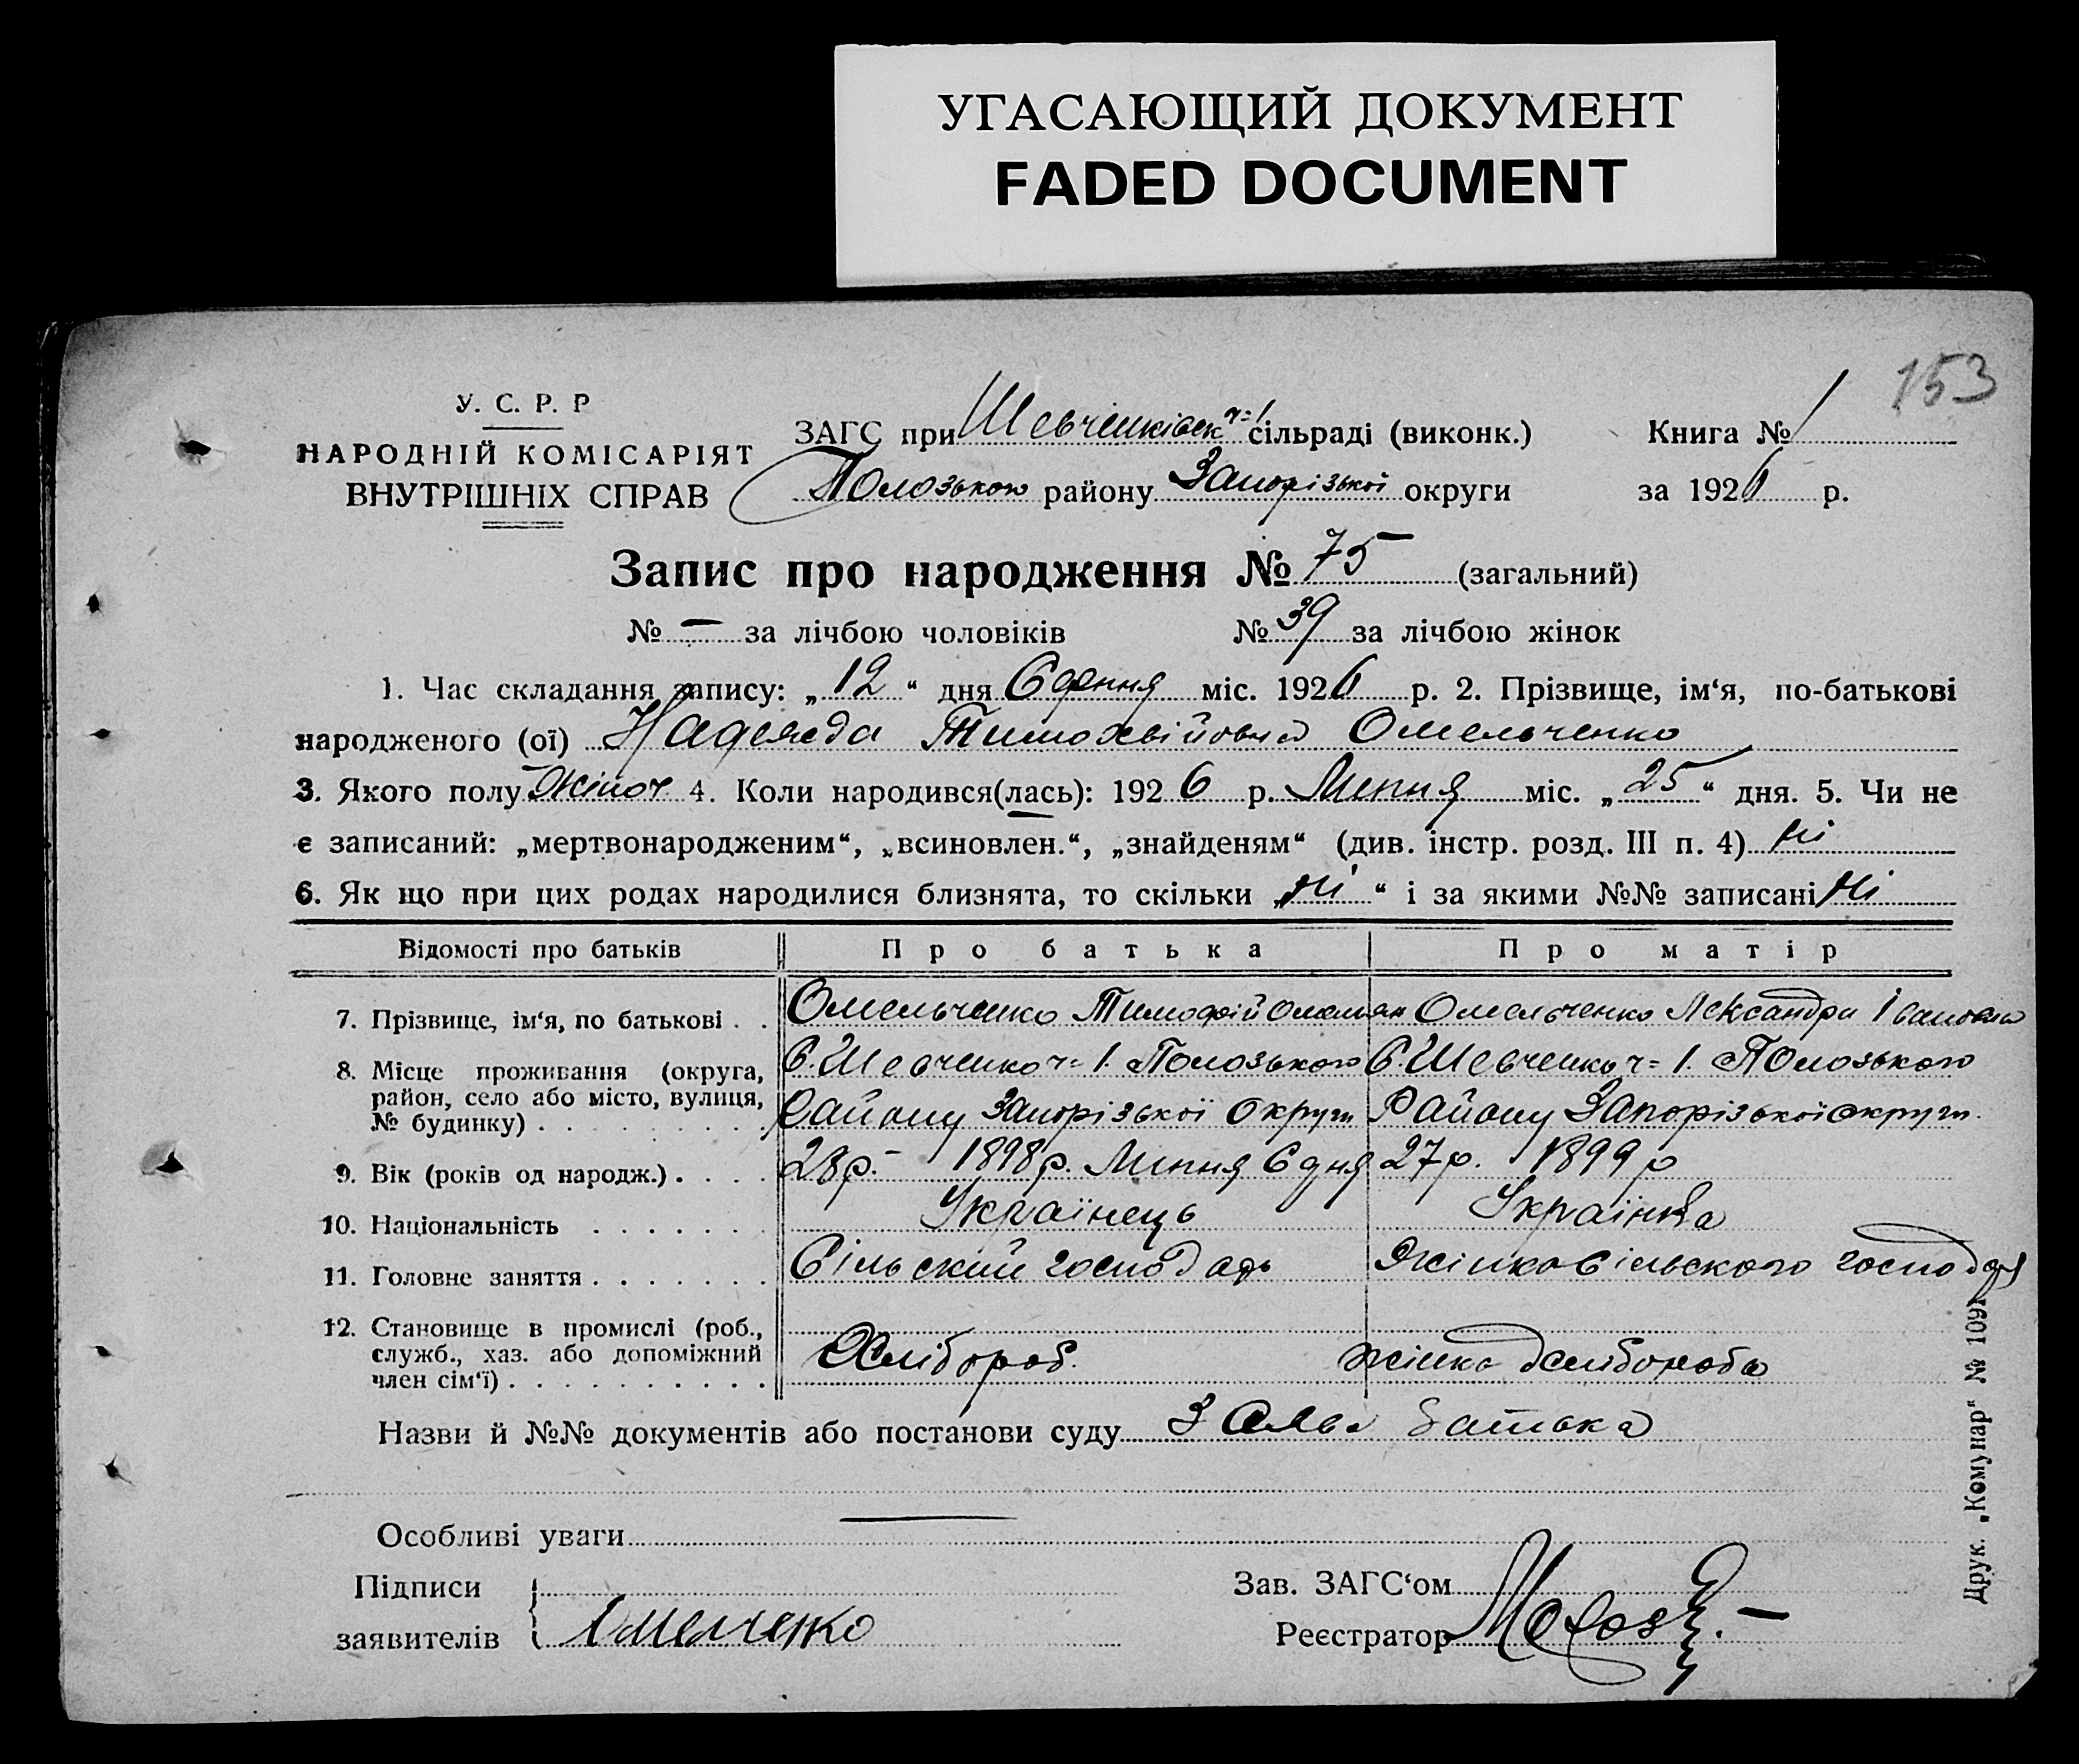 УГАСАЮЩИЙ ДОКУМЕНТ
FADED DOCUMENT
153
У. С. Р. Р
НАРОДНІЙ КОМІСАРІЯТ
ВНУТРІШНІХ СПРАВ
ЗАГС при Шевченківськ ч=1 сільраді (виконк.) Книга № 1
Полозького району Запорізької округи за 1926 р.
Запис про народження № 75 (загальний)
№ — за лічбою чоловіків № 39 за лічбою жінок
1. Час складання запису: „12“ дня Серпня міс. 1926 р. 2. Прізвище, ім‘я, по-батькові
народженого (ої) Надежда Тимохвійовна Омельченко
3. Якого полу Жіноч 4. Коли народився(лась): 1926 р. Липня міс. „25“ дня. 5. Чи не
є записаний: „мертвонародженим“, „всиновлен.“, „знайденям“ (див. інстр. розд. III п. 4) ні
6. Як що при цих родах народилися близнята, то скільки „ні“ і за якими №№ записані ні
Відомості про батьків Про батька Про матір
7. Прізвище, ім‘я, по батькові . . Омельченко Тимофій Омелян Омельченко Лександра Івановна
8. Місце проживання (округа, район, село або місто, вулиця, № будинку) . . . . . . . . .
С. Шевченко ч=1. Полозького С. Шевченко ч=1. Полозького
Району Запорізької округи Району Запорізької округи.
9. Вік (років од народж.) . . . . 28 р.– 1898 р. Липня 6 дня 27 р. 1899 р
10. Національність . . . . . . Українець Українка
11. Головне заняття . . . . . . . Сільский господарь Жінка сільского господаря
12. Становище в промислі (роб., служб., хаз. або допоміжний член сім‘ї) . . . . . . . . . . Хлібороб. жінка хлібороба
Назви й №№ документів або постанови суду З слів батька
Особливі уваги
Підписи
заявителів Омелченко
Зав. ЗАГС‘ом
Реєстратор
Друк. „Комунар“ № 1091